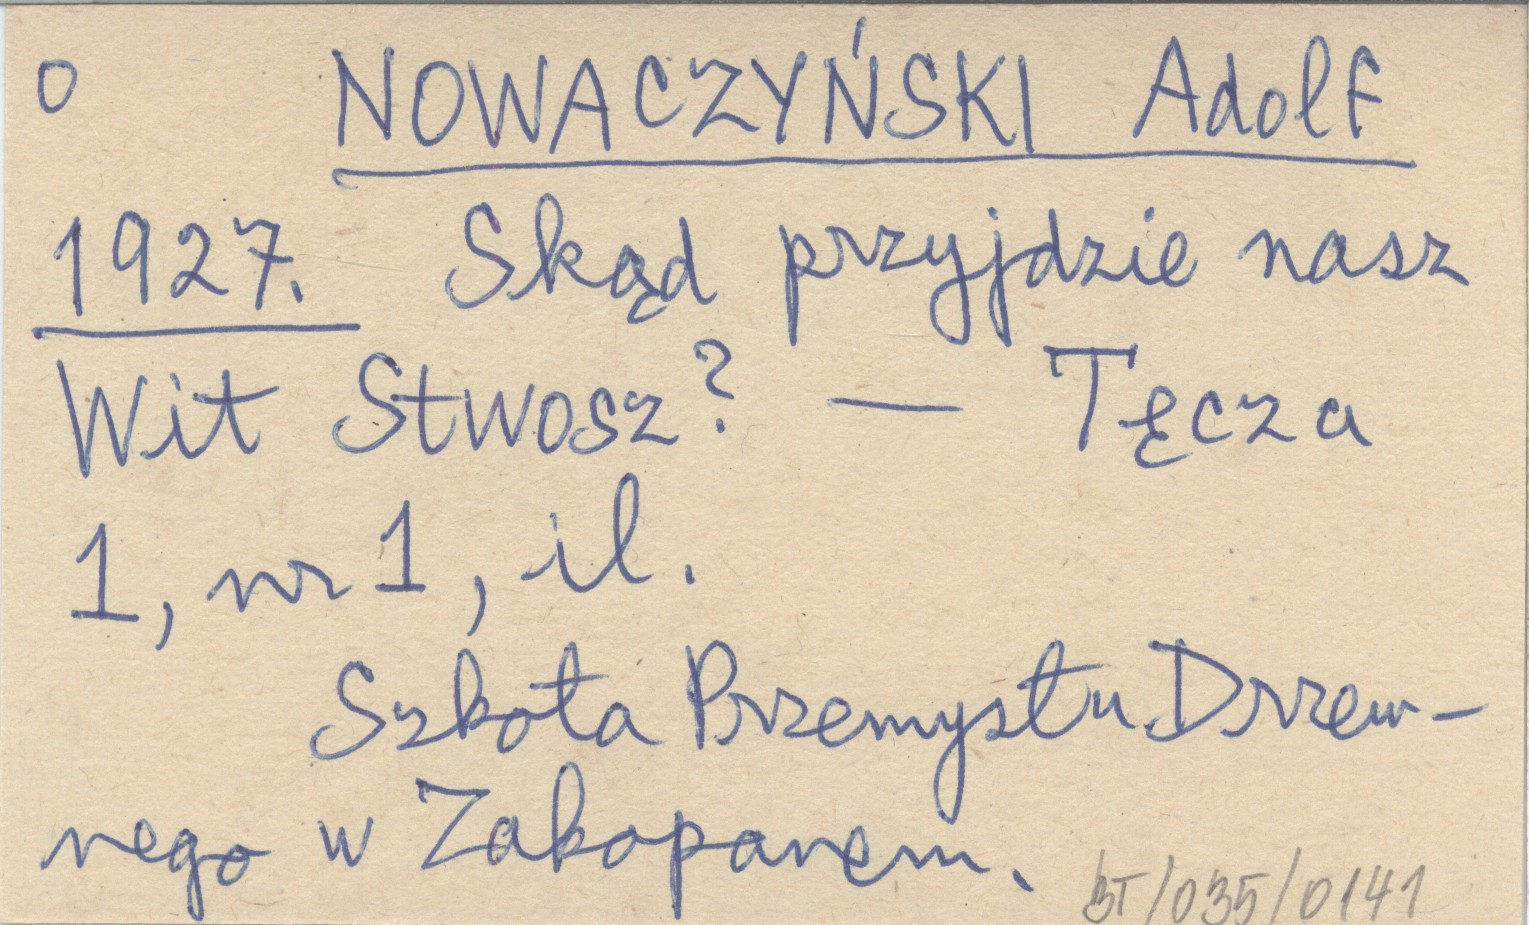 o NOWACZYŃSKI Adolf
1927. Skąd przyjdzie nasz
Wit Stwosz? — Tęcza
1, nr 1, il.
Szkoła Przemysłu Drzew-
nego w Zakopanem.
BT/035/0141